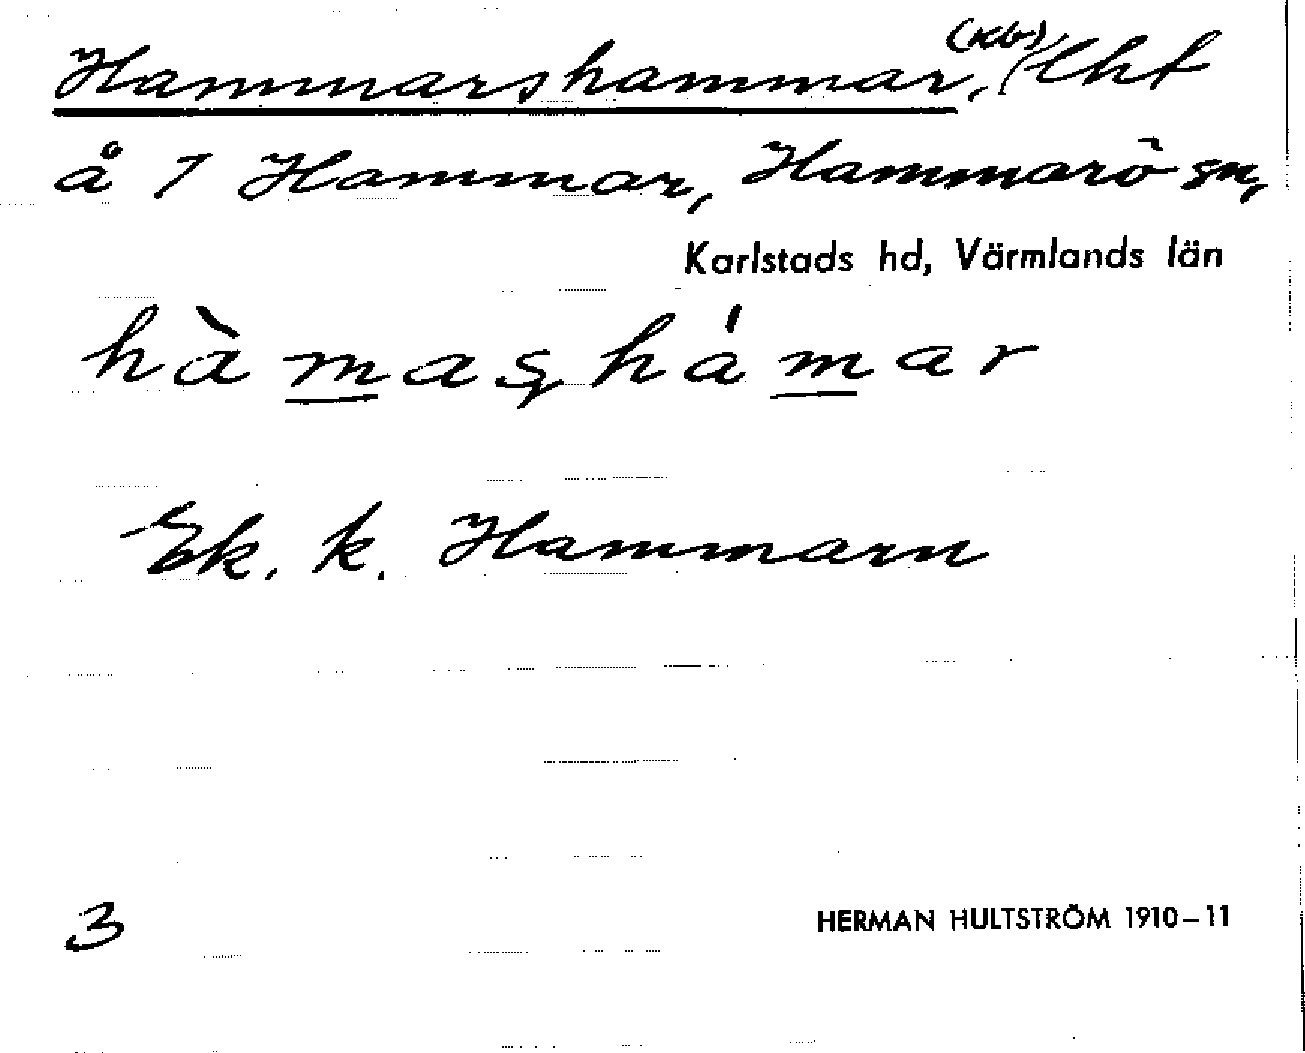 Hammarshammar, (Kb), lht
å 7 Hammar, Hammarö sn,
Karlstads hd, Värmlands län
hàmaşhámar
Ek. k. Hammarn
3
HERMAN HULTSTRÖM 1910–11